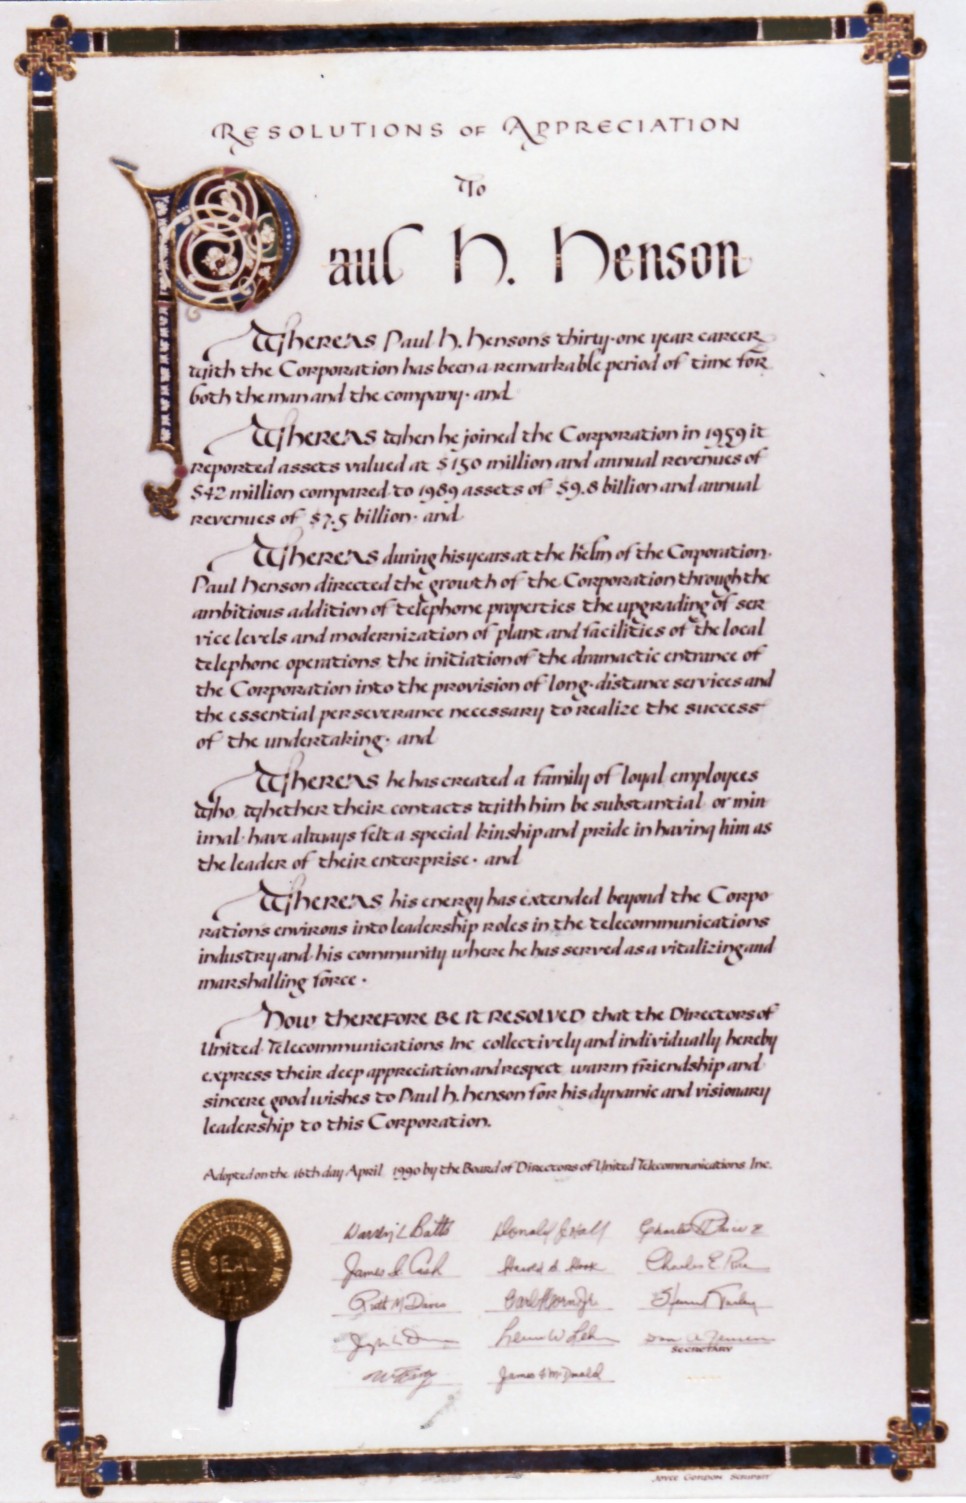 RESOLUTIONS OF APPRECIATION
To
Paul H. Henson
Whereas Paul H. Henson's thirty-one year career
with the Corporation has been a remarkable period of time for
both the man and the company · and
Whereas when he joined the Corporation in 1959 it
reported assets valued at $150 million and annual revenues of
$42 million compared to 1989 assets of $9.8 billion and annual
revenues of $7.5 billion · and
Whereas during his years at the helm of the Corporation
Paul Henson directed the growth of the Corporation through the
ambitious addition of telephone properties the upgrading of ser
vice levels and modernization of plant and facilities of the local
telephone operations the initiation of the dramactic entrance of
the Corporation into the provision of long-distance services and
the essential perseverance necessary to realize the success
of the undertaking · and
Whereas he has created a family of loyal employees
who whether their contacts with him be substantial or min
imal · have always felt a special kinship and pride in having him as
the leader of their enterprise · and
Whereas his energy has extended beyond the Corpo
ration's environs into leadership roles in the telecommunications
industry and his community where he has served as a vitalizing and
marshalling force ·
Now THEREFORE BE IT RESOLVED that the Directors of
United Telecommunications Inc collectively and individually hereby
express their deep appreciation and respect warm friendship and
sincere good wishes to Paul H. Henson for his dynamic and visionary
leadership to this Corporation.
Adopted on the 16th day April 1990 by the Board of Directors of United Telecommunications Inc.
Warren L Batts Donald J Hall
James I Cash Harold S Hook Charles E Rice
Ruth M Davis Carl Horn Jr
James McDonald
SECRETARY
UNITED TELECOMMUNICATIONS, INC.
SEAL
JOYCE GORDON SCRIPSIT